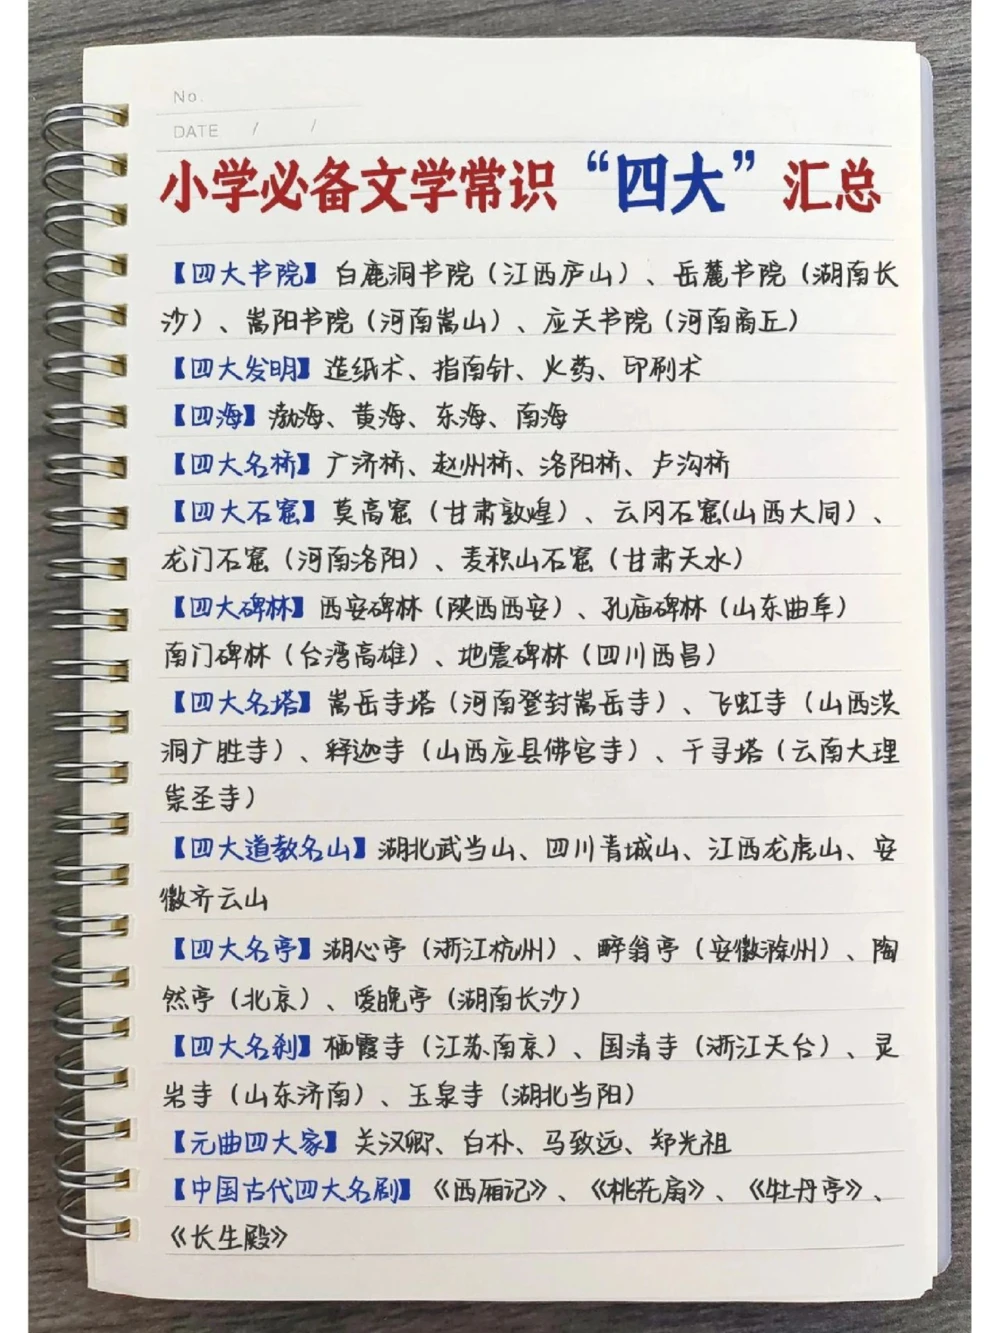 No.
DATE / /
小学必备文学常识“四大”汇总
【四大书院】白鹿洞书院（江西庐山）、岳麓书院（湖南长
沙）、嵩阳书院（河南嵩山）、应天书院（河南商丘）
【四大发明】造纸术、指南针、火药、印刷术
【四海】渤海、黄海、东海、南海
【四大名桥】广济桥、赵州桥、洛阳桥、卢沟桥
【四大石窟】莫高窟（甘肃敦煌）、云冈石窟(山西大同）、
龙门石窟（河南洛阳）、麦积山石窟（甘肃天水）
【四大碑林】西安碑林（陕西西安）、孔庙碑林（山东曲阜）
南门碑林（台湾高雄）、地震碑林（四川西昌）
【四大名塔】嵩岳寺塔（河南登封嵩岳寺）、飞虹寺（山西洪
洞广胜寺）、释迦寺（山西应县佛宫寺）、千寻塔（云南大理
崇圣寺）
【四大道教名山】湖北武当山、四川青城山、江西龙虎山、安
徽齐云山
【四大名亭】湖心亭（浙江杭州）、醉翁亭（安徽滁州）、陶
然亭（北京）、爱晚亭（湖南长沙）
【四大名刹】栖霞寺（江苏南京）、国清寺（浙江天台）、灵
岩寺（山东济南）、玉泉寺（湖北当阳）
【元曲四大家】关汉卿、白朴、马致远、郑光祖
【中国古代四大名剧】《西厢记》、《桃花扇》、《牡丹亭》、
《长生殿》